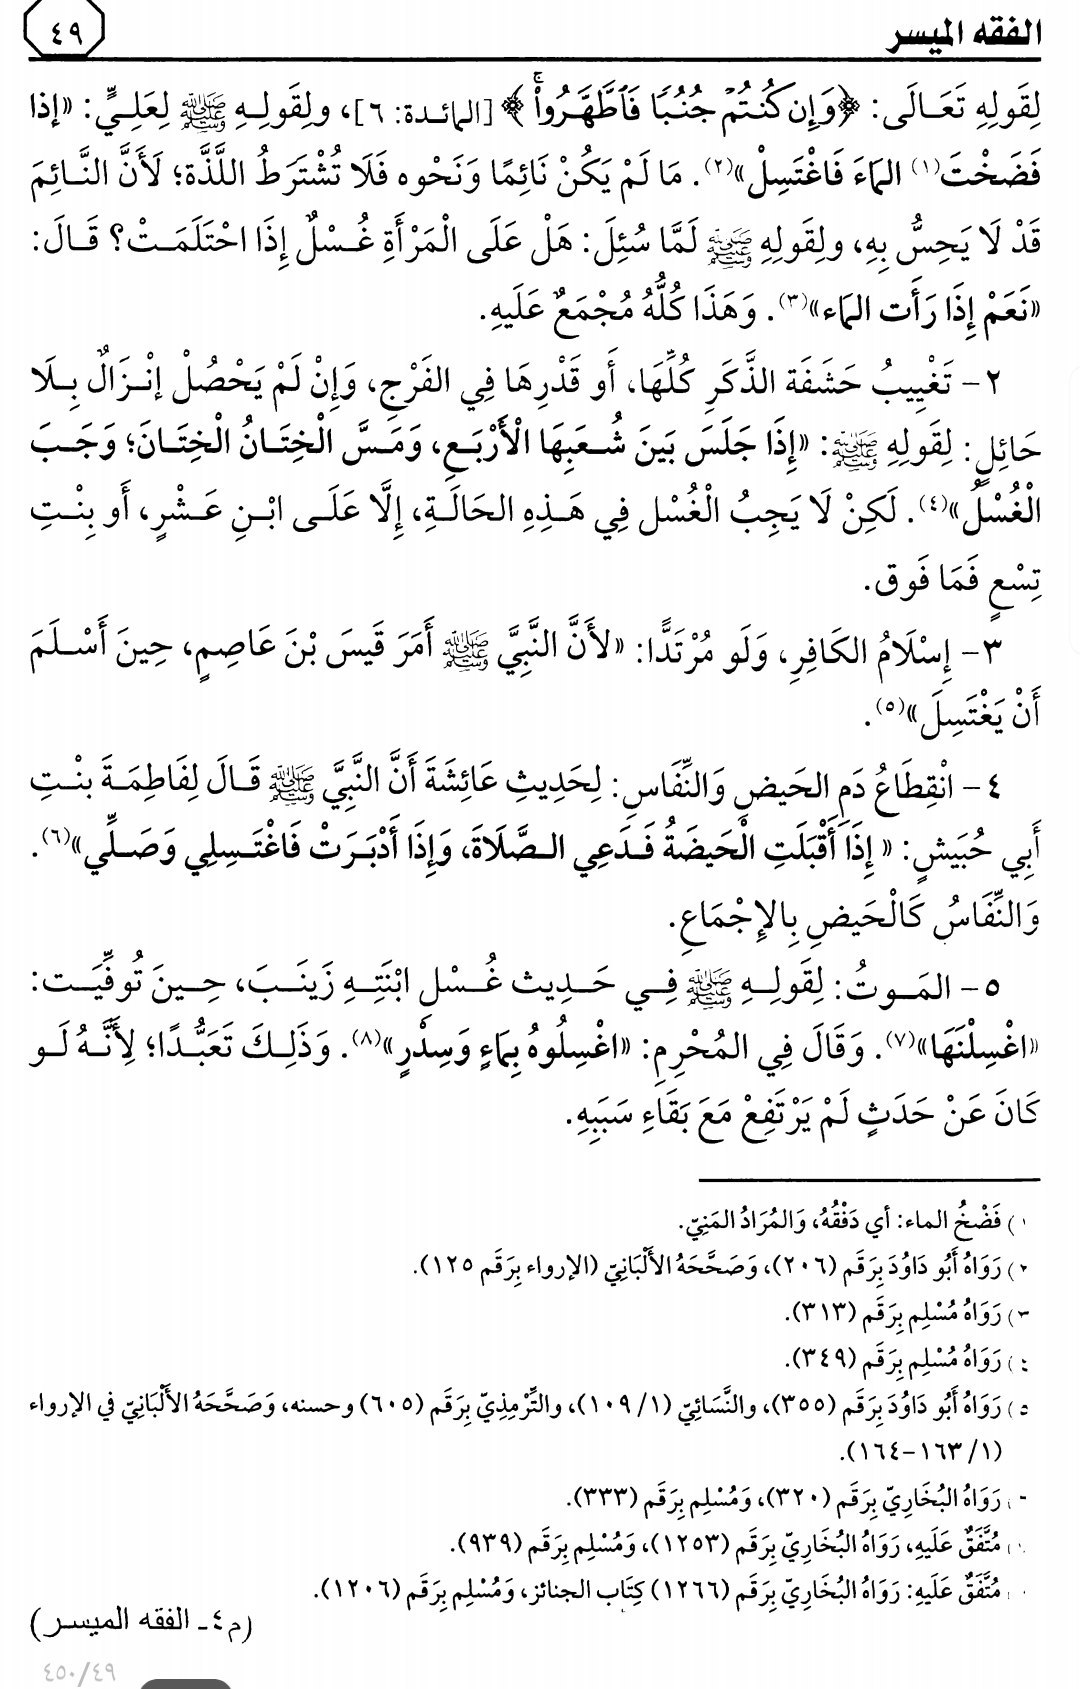 الفقه الميسر
٤٩
لِقَولِهِ تَعَالَى: ﴿وَإِن كُنتُمْ جُنُبًا فَاطَّهَّرُواْ﴾ [المائدة: ٦]، ولِقَولِهِ ﷺ لِعَلِيٍّ: «إذا
فَضَخْتَ(١) الماءَ فَاغْتَسِلْ»(٢). مَا لَمْ يَكُنْ نَائِمًا وَنَحْوه فَلَا تُشْتَرَطُ اللَّذَّة؛ لَأَنَّ النَّائِمَ
قَدْ لَا يَحِسُّ بِهِ، ولِقَولِهِ ﷺ لَمَّا سُئِلَ: هَلْ عَلَى الْمَرْأَةِ غُسْلٌ إِذَا احْتَلَمَتْ؟ قَالَ:
«نَعَمْ إِذَا رَأَت الماء»(٣). وَهَذَا كُلُّهُ مُجْمَعٌ عَلَيهِ.
٢- تَغْيِيبُ حَشَفَة الذَّكَرِ كُلِّهَا، أَو قَدْرِهَا فِي الفَرْجِ، وَإِنْ لَمْ يَحْصُلْ إنْزَالٌ بِلَا
حَائِلٍ: لِقَولِهِ ﷺ: «إِذَا جَلَسَ بَينَ شُعَبِهَا الْأَرْبَعِ، وَمَسَّ الْخِتَانُ الْخِتَانَ؛ وَجَبَ
الْغُسْلُ»(٤). لَكِنْ لَا يَجِبُ الْغُسْل فِي هَذِهِ الحَالَةِ، إِلَّا عَلَى ابْنِ عَشْرٍ، أَو بِنْتِ
تِسْعٍ فَمَا فَوق.
٣- إِسْلَامُ الكَافِرِ، وَلَو مُرْتَدًّا: «لأَنَّ النَّبِيَّ ﷺ أَمَرَ قَيسَ بْنَ عَاصِمٍ، حِينَ أَسْلَمَ
أَنْ يَغْتَسِلَ»(٥).
٤- انْقِطَاعُ دَمِ الحَيضِ وَالنِّفَاسِ: لِحَدِيثِ عَائِشَةَ أَنَّ النَّبِيَّ ﷺ قَالَ لِفَاطِمَةَ بِنْتِ
أَبِي حُبَيشٍ: « إِذَا أَقْبَلَتِ الْحَيضَةُ فَدَعِي الصَّلَاةَ، وَإِذَا أَدْبَرَتْ فَاغْتَسِلِي وَصَلِّي»(٦).
وَالنِّفَاسُ كَالْحَيضِ بِالإِجْمَاعِ.
٥- المَوتُ: لِقَولِهِ ﷺ فِي حَدِيث غُسْلِ ابْنَتِهِ زَينَبَ، حِينَ تُوفِّيَت:
«اغْسِلْنَهَا»(٧). وَقَالَ فِي المُحْرِمِ: «اغْسِلُوهُ بِمَاءٍ وَسِدْرٍ»(٨). وَذَلِكَ تَعَبُّدًا؛ لِأَنَّهُ لَو
كَانَ عَنْ حَدَثٍ لَمْ يَرْتَفِعْ مَعَ بَقَاءِ سَبَبِهِ.
١) فَضْخُ الماء: أي دَفْقُهُ، وَالمُرَادُ المَنِيّ.
٢) رَوَاهُ أَبُو دَاوُدَ بِرَقَم (٢٠٦)، وَصَحَّحَهُ الأَلْبَانِيّ (الإرواء بِرَقَم ١٢٥).
٣) رَوَاهُ مُسْلِم بِرَقَم (٣١٣).
٤) رَوَاهُ مُسْلِم بِرَقَم (٣٤٩).
٥) رَوَاهُ أَبُو دَاوُدَ بِرَقَم (٣٥٥)، والنَّسَائِيّ (١/ ١٠٩)، والتِّرْمِذِيّ بِرَقَم (٦٠٥) وحسنه، وَصَحَّحَهُ الأَلْبَانِيّ في الإرواء
(١/ ١٦٣-١٦٤).
رَوَاهُ البُخَارِيّ بِرَقَم (٣٢٠)، وَمُسْلِم بِرَقَم (٣٣٣).
مُتَّفَقٌ عَلَيهِ، رَوَاهُ البُخَارِيّ بِرَقَم (١٢٥٣)، وَمُسْلِم بِرَقَم (٩٣٩).
مُتَّفَقٌ عَلَيهِ: رَوَاهُ البُخَارِيّ بِرَقَم (١٢٦٦) كِتَاب الجنائز، وَمُسْلِم بِرَقَم (١٢٠٦).
(م٤ـ الفقه الميسر)
٤٥٠/٤٩